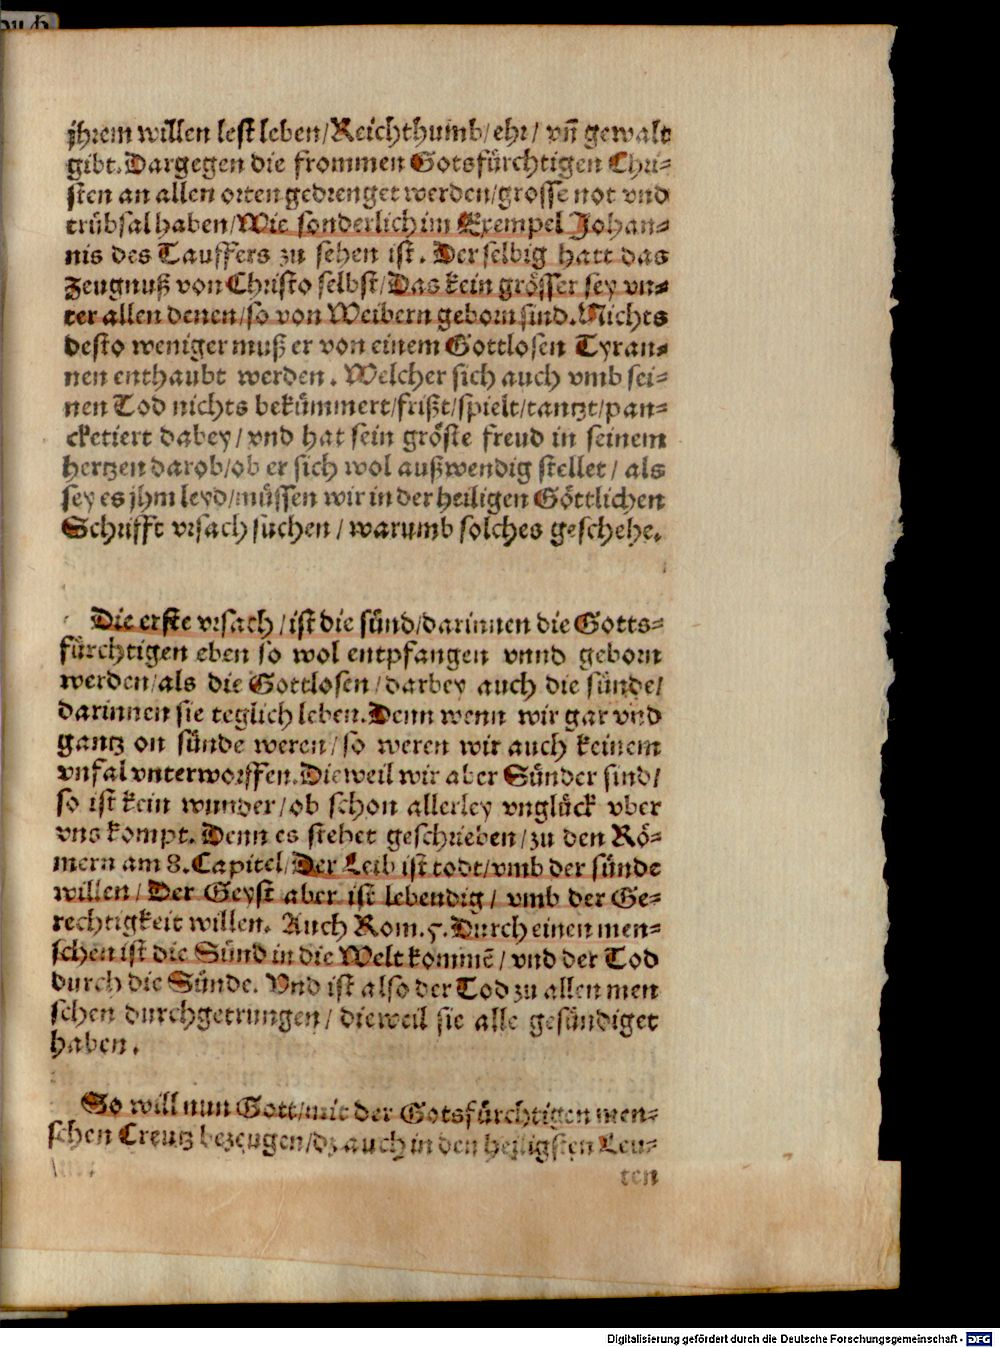 jhrem willen lest leben/Reichthumb/ehr/ vñ gewalt
gibt. Dargegen die frommen Gotsfürchtigen Chri-
sten an allen orten gedrenget werden/grosse not vnd
trübsal haben/Wie sonderlich im Exempel Johan-
nis des Tauffers zu sehen ist. Der selbig hatt das
Zeugnuß von Christo selbst/Das kein grösser sey vn-
ter allen denen/so von Weibern geborn sind. Nichts
desto weniger muß er von einem Gottlosen Tyran-
nen enthaubt werden. Welcher sich auch vmb sei-
nen Tod nichts bekümmert/frißt/spielt/tantzt/pan-
cketiert dabey/ vnd hat sein gröste freud in seinem
hertzen darob/ob er sich wol außwendig stellet/ als
sey es jhm leyd/müssen wir in der heiligen Göttlichen
Schrifft vrsach suchen/ warumb solches geschehe.
Die erste vrsach/ist die sünd/darinnen die Gotts-
fürchtigen eben so wol entpfangen vnnd geborn
werden/als die Gottlosen/darbey auch die sünde/
darinnen sie teglich leben. Denn wenn wir gar vnd
gantz on sünde weren/so weren wir auch keinem
vnfal vnterworffen. Dieweil wir aber Sünder sind/
so ist kein wunder/ob schon allerley vnglück vber
vns kompt. Denn es stehet geschrieben/zu den Rö-
mern am 8. Capitel/Der Leib ist todt/vmb der sünde
willen/Der Geyst aber ist lebendig/ vmb der Ge-
rechtigkeit willen. Auch Rom. 5. Durch einen men-
schen ist die Sünd in die Welt kommē/ vnd der Tod
durch die Sünde. Vnd ist also der Tod zu allen men
schen durchgetrungen/ dieweil sie alle gesündiget
haben.
So will nun Gott/mit der Gotsfürchtigen men-
schen Creutz bezeugen/dz auch in den heiligsten Leu-
ten
Digitalisierung gefördert durch die Deutsche Forschungsgemeinschaft - DFG